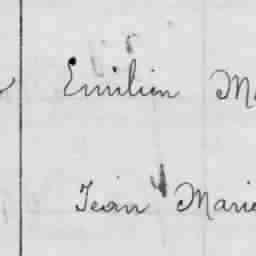 Emilien M
Jean Marie